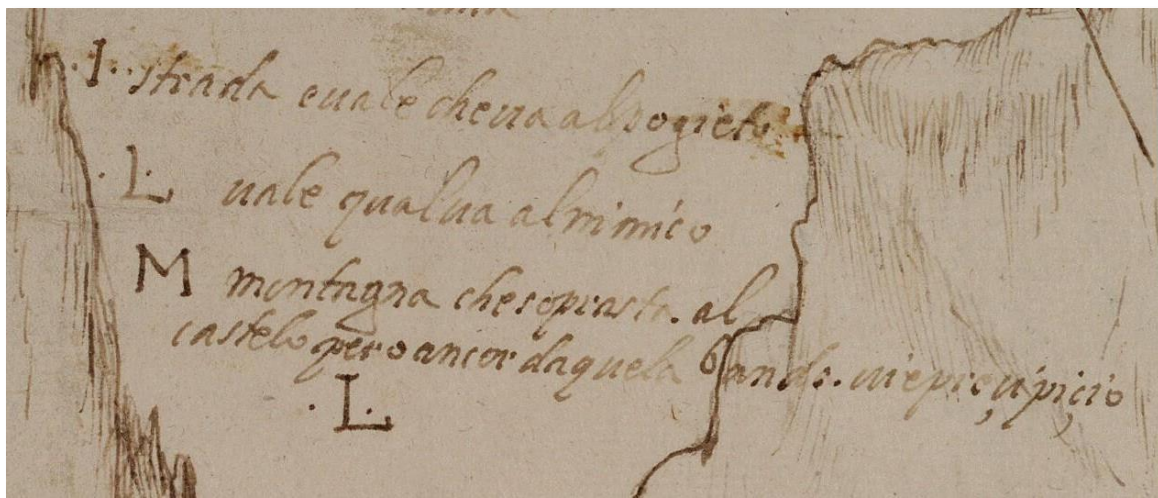 .I. strada euale cheua alpogieto
.L. uale qualua alnimico
M montagna chesoprasta. al
castelo pero ancor daquela banda. uieprecipicio
.L.